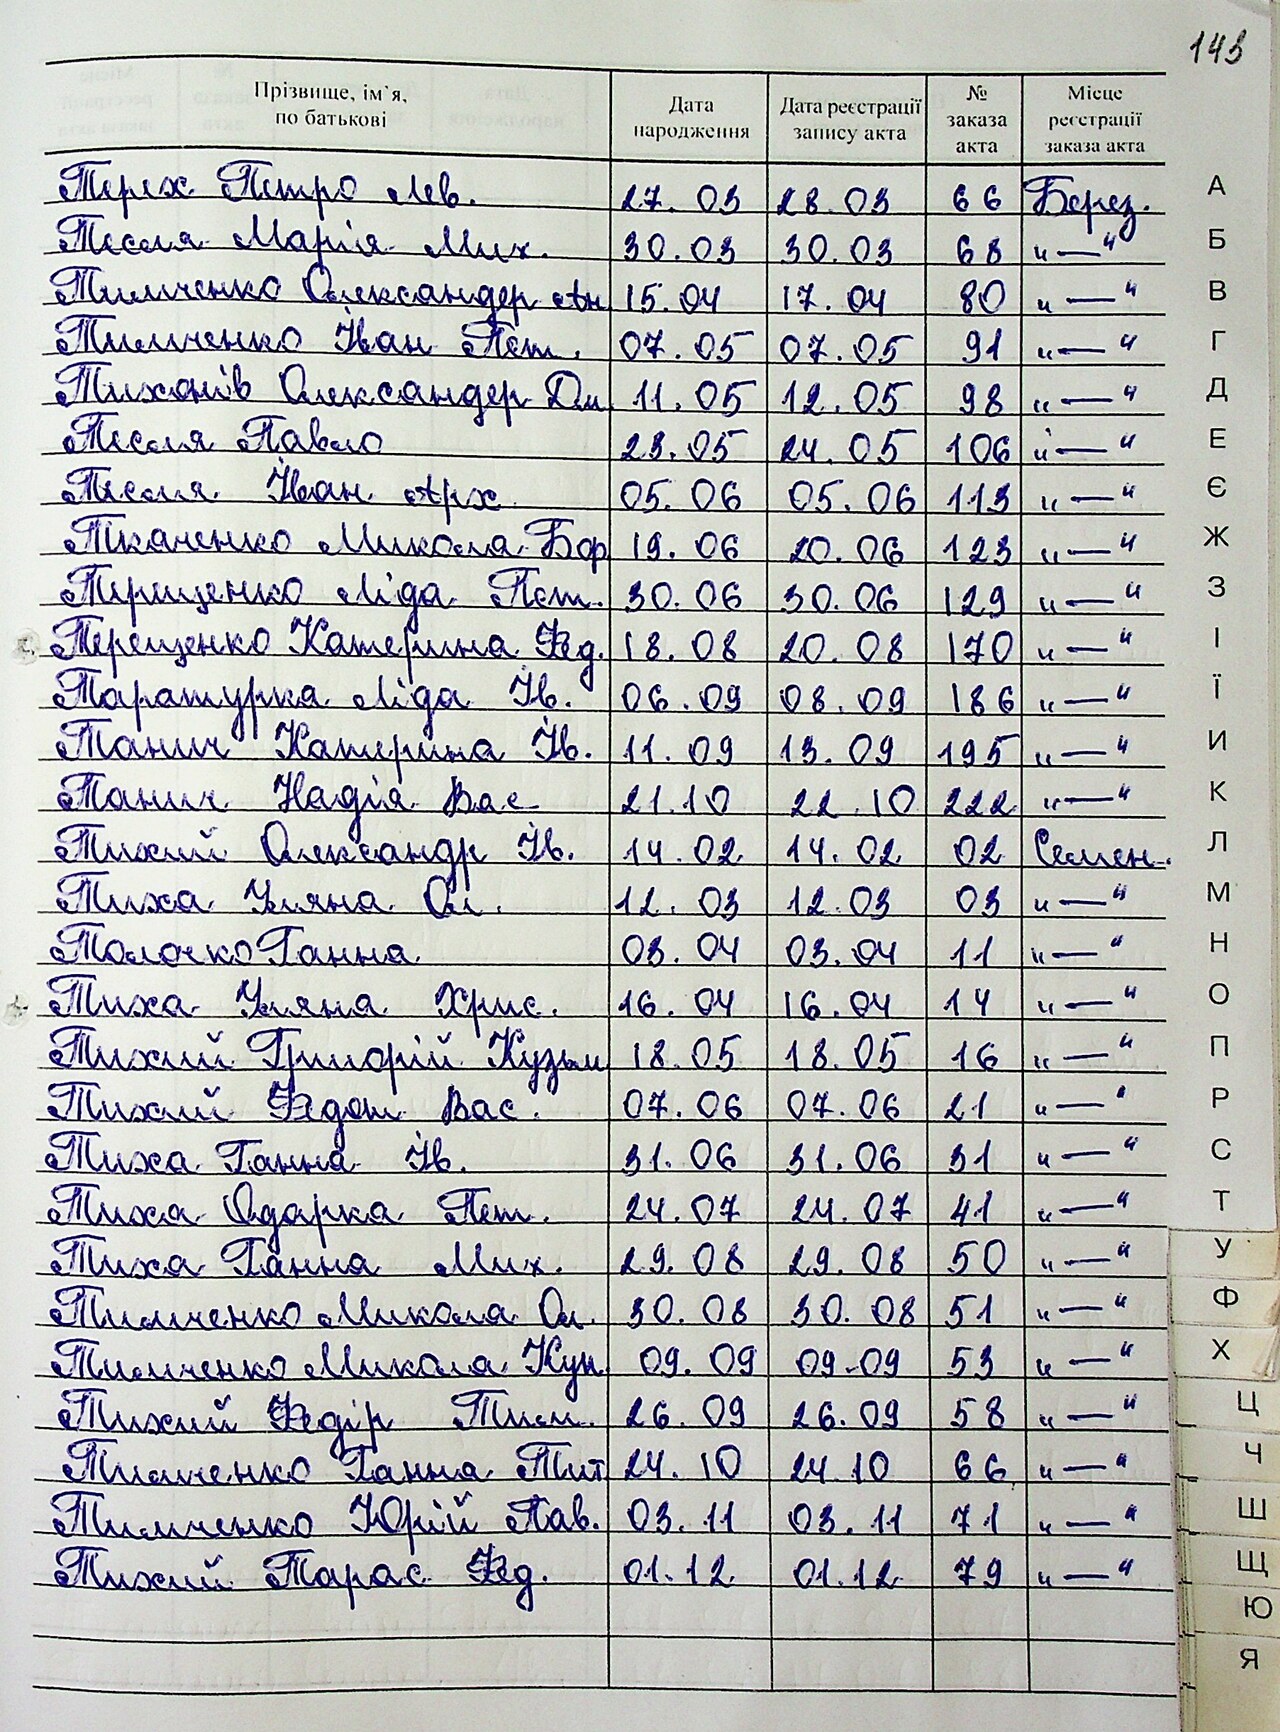 143
Прізвище, ім'я, по батькові | Дата народження | Дата реєстрації запису акта | № заказа акта | Місце реєстрації заказа акта
Терех Петро Лев. 27.03 28.03 66 Берез.
Тесля Марія Мих. 30.03 30.03 68 "—"
Тимченко Олександер Ан. 15.04 17.04 80 "—"
Тимченко Іван Пет. 07.05 07.05 91 "—"
Тихонів Олександер Дм. 11.05 12.05 98 "—"
Тесля Павло 23.05 24.05 106 "—"
Тесля Іван Арх. 05.06 05.06 113 "—"
Ткаченко Микола Бор 19.06 20.06 123 "—"
Терещенко Ліда Пет. 30.06 30.06 129 "—"
Терещенко Катерина Фед. 18.08 20.08 170 "—"
Таратурка Ліда Ів. 06.09 08.09 186 "—"
Танич Катерина Ів. 11.09 13.09 195 "—"
Танич Надія Вас 21.10 22.10 222 "—"
Тихий Олександр Ів. 14.02 14.02 02 Семен.
Тиха Уляна Ол. 12.03 12.03 03 "—"
Толочко Ганна 03.04 03.04 11 "—"
Тиха Уляна Хрис. 16.04 16.04 14 "—"
Тихий Григорій Кузьм 18.05 18.05 16 "—"
Тихий Федот Вас. 07.06 07.06 21 "—"
Тиха Ганна Ів. 31.06 31.06 31 "—"
Тиха Одарка Пет. 24.07 24.07 41 "—"
Тиха Ганна Мих. 29.08 29.08 50 "—"
Тимченко Микола Ол. 30.08 30.08 51 "—"
Тимченко Микола Кун 09.09 09-09 53 "—"
Тихий Федір Тим. 26.09 26.09 58 "—"
Тимченко Ганна Тит 24.10 24.10 66 "—"
Тимченко Юрій Пав. 03.11 03.11 71 "—"
Тихий Тарас Фед. 01.12 01.12 79 "—"
А
Б
В
Г
Д
Е
Є
Ж
З
І
Ї
И
К
Л
М
Н
О
П
Р
С
Т
У
Ф
Х
Ц
Ч
Ш
Щ
Ю
Я